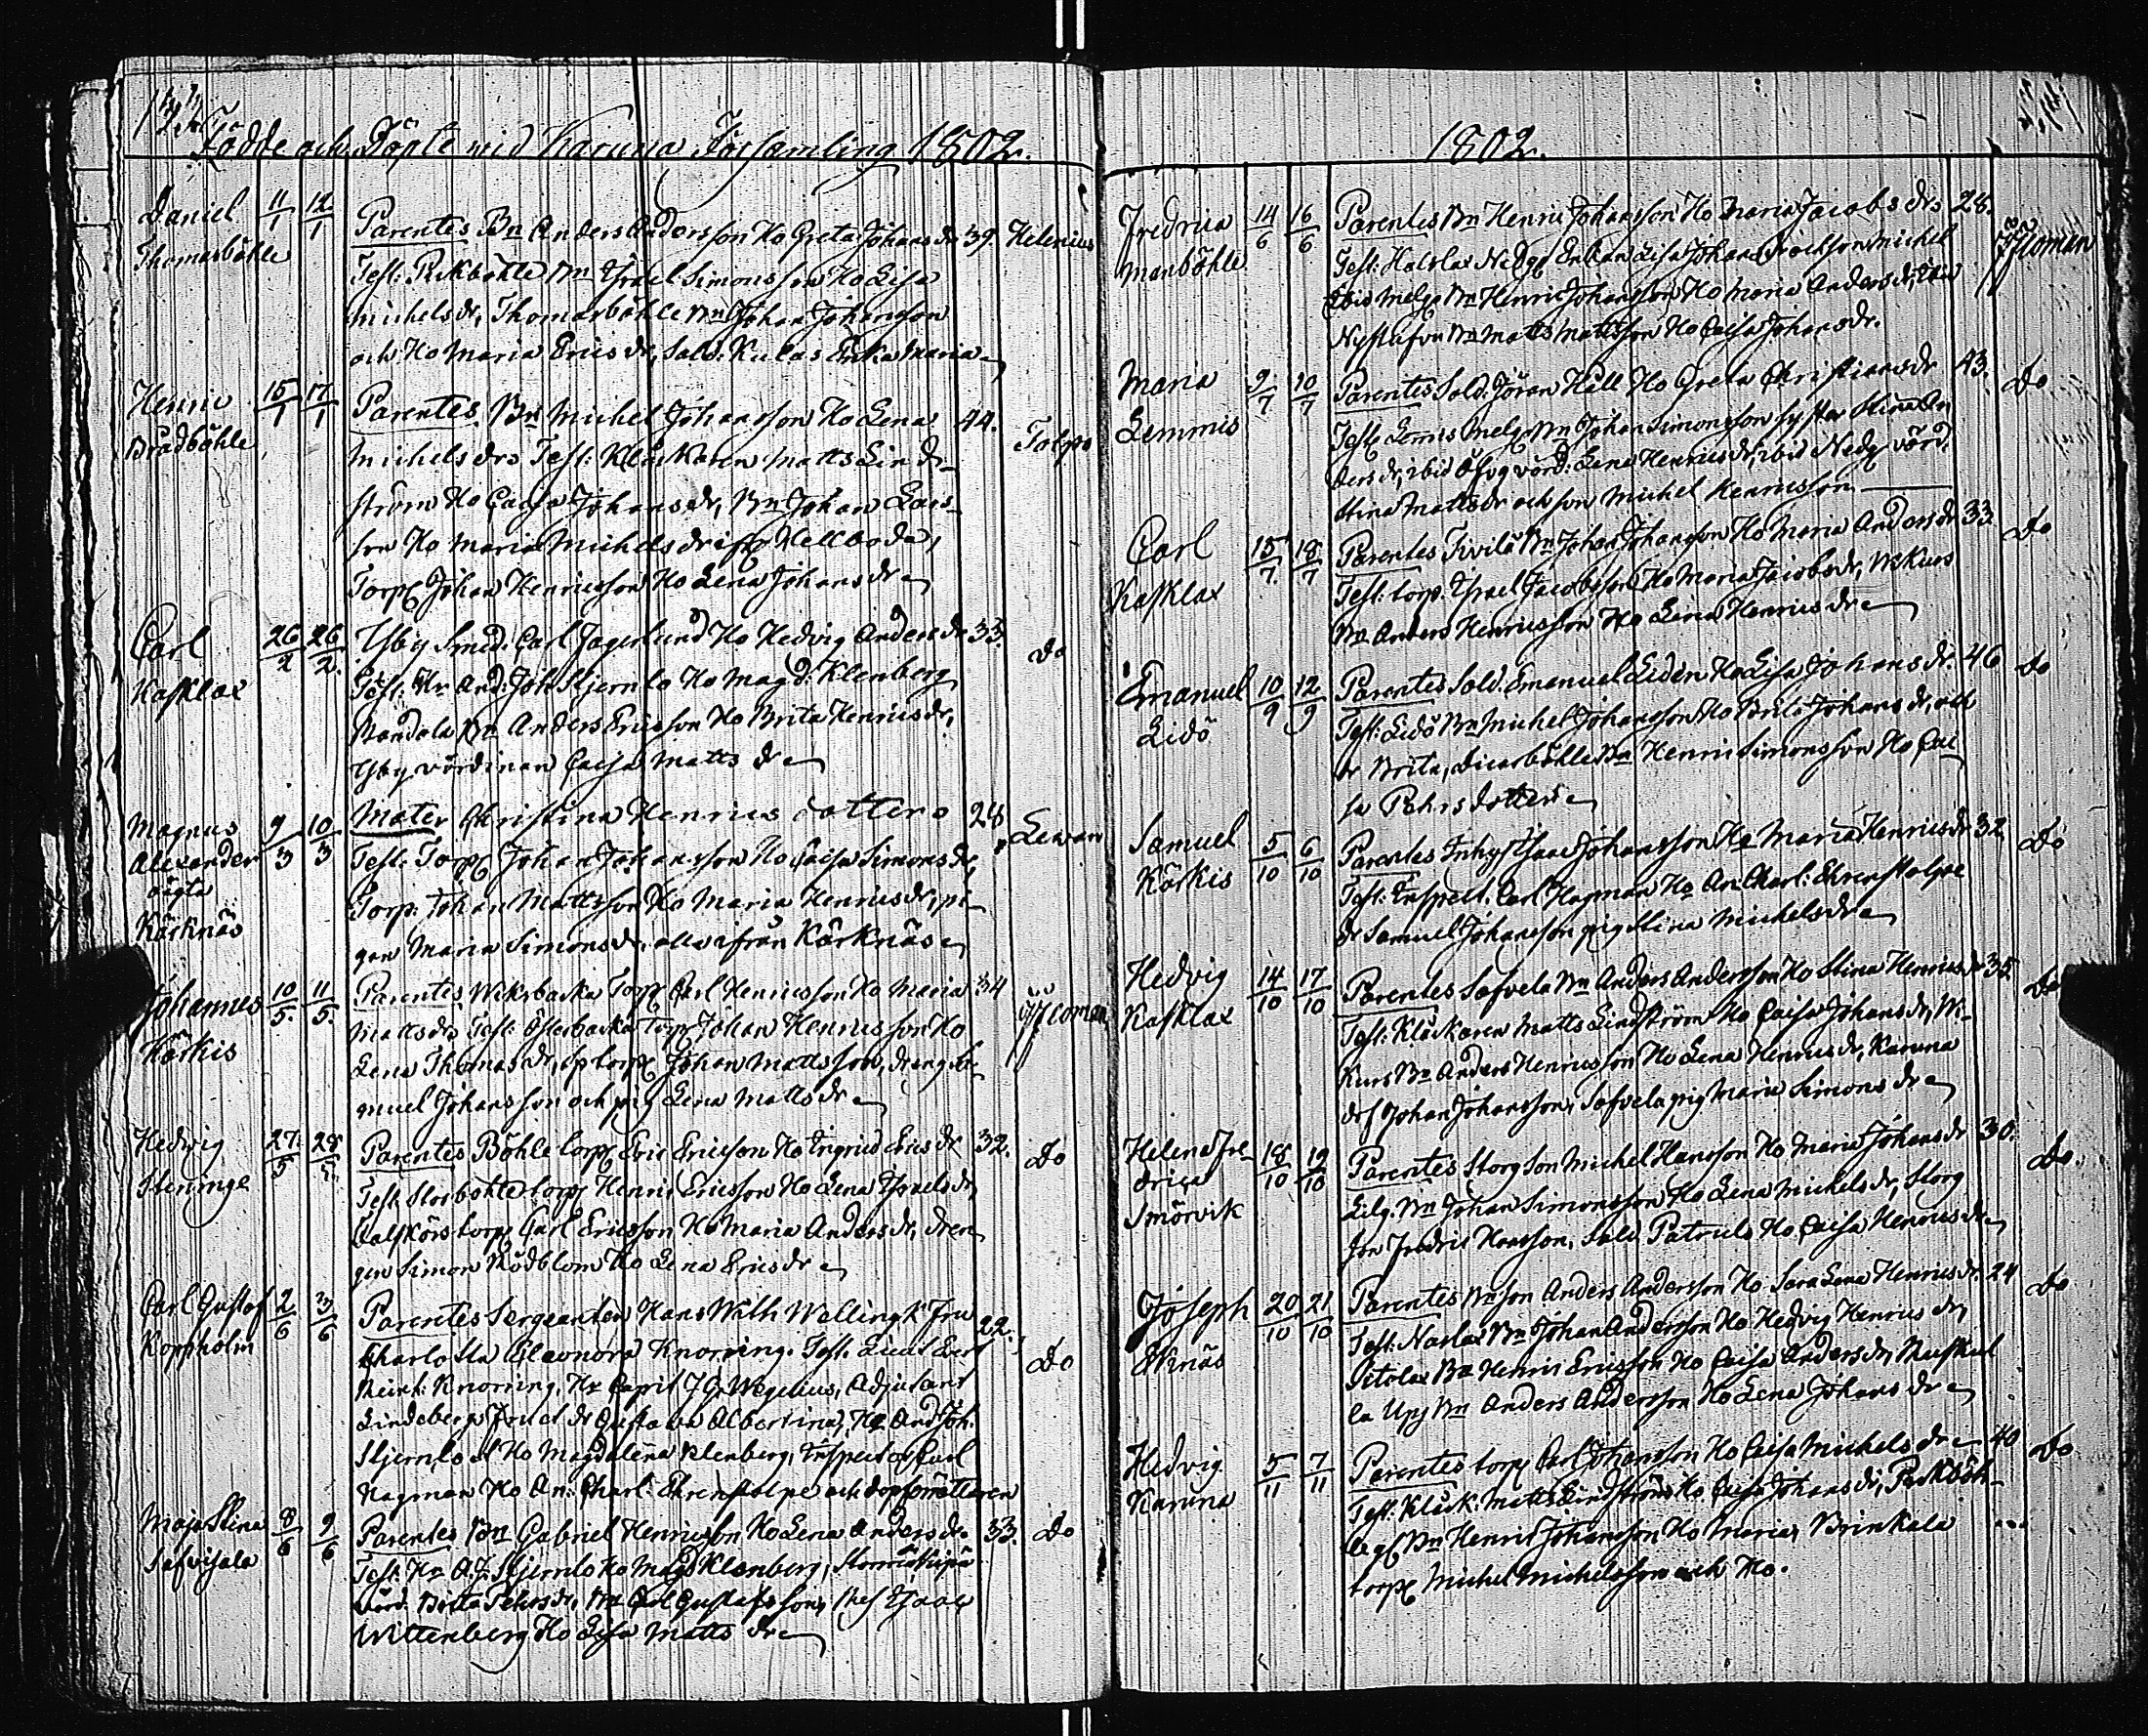 Födde och Döpte vid Karuna Församling 1802.
Daniel 11/1 12/1 Parentes Bn Anders Andersson Ho Greta Johans dr 39. Helenius
Thomasböhle Test: Pukböhle Bn Israel Simonsson Ho Lisa
Michels dr, Thomasböhle Bn Johan Johansson
och Ho Maria Erics dr, Sold. Kulas Enka Maria
Henric 15/1 17/1 Parentes Bn Michel Johansson Ho Lena 44.
Brådböhle Michels dr Test: Klåckaren Matts Lind- Tolpo
ström Ho Caisa Johans dr, Bn Johan Lars-
son Ho Maria Michels dr Hellboda,
Torp Johan Henricsson Ho Lena Johans dr
Carl 26/2 26/2. Ysby Smed. Carl Jagerlund Ho Hedvig Anders dr 33. do
Kasklax Test: Hr And: Joh Stjernlo Ho Magd: Klenberg
Bn Anders Ericsson Ho Brita Henrics dr,
Ysby vördinan Caisa Matts dr
Magnus 9/3 10/3 Mater Christina Henrics dotter 28 Lewan
Alexander Test: Torp Johan Johansson Ho Caisa Simons dr,
oägta Torp: Johan Mattsson Ho Maria Henrics dr, pi-
Kärknäs gan Maria Simons dr. alla ifrån Kärknäs
Johannes 10/5. 11/5. Parentes Wiksbacka Torp Carl Henricsson Ho Maria 34
Kärkis Matts dr Test: Österbacka Torp Johan Henricsson Ho
Lena Thomas dr, torp Johan Mattsson, dreng Sa-
muel Johansson och pig Lena Matts dr
Hedvig 27/5 28/5 Parentes Böhle torp Eric Ericsson Ho Ingrid Erics dr 32. Do
Steninge Test: Storböhle torp Henric Ericsson Ho Lena Israels dr,
torp Carl Ericsson Ho Maria Anders dr, dren-
gen Simon Rödblom Ho Lena Erics dr
Carl Gustaf 2/6 3/6 Parentes Sergeanten Hans Wilh Wellingk Fru 22. Do
Koppholm Charlotta Eleonora Knorring. Test. Lieut
Reinh: Knorring, Hr Capit J G Wegelius, Adjutant
Lindeberg Gustava Albertina, Hr And Joh:
Stjernlo Ho Magdalena Klenberg, Inspect Carl
Hagman Ho An: Charl: Ehrenstolpe och dopförrättaren
Maja Stina 8/6 9/6 Parentes Bn Gabriel Henricsson Ho Lena Anders dr 33. Do
Test: Hr A. J. Stjernlo Ho Magd Klenberg,
vörd. Britta Pehrs dr, Bn Carl Gustafsson, Isaac
Wittenberg Ho Lisa Matts dr
1802.
Fredrica 14/6 16/6 Parentes Bn Henric Johansson Ho Maria Jacobs dr 28.
Manböhle Test: Lisa Johans dr och son Michel
ibid Melg Bn Henric Johansson Ho Maria Anders dr,
Bn Matts Mattsson Ho Caisa Johans dr.
Maria 9/7 10/7 Parentes Sold. Jöran Häll Ho Greta Christians dr 43. Do
Lemmis Test Lemis Melg Bn Johan Simonsson syster Stina An-
ders dr, ibid Öfvg vörd: Lena Henrics dr, ibid Nedg vörd.
Stina Matts dr och son Michel Henricsson
Carl 15/7. 18/7 Parentes Tivilä Bn Johan Johansson Ho Maria Anders dr 33. Do
Kasklax Test: torp. Israel Jacobsson Ho Maria Jacobs dr,
Bn Anders Henricsson Ho Lena Henrics dr
Emanuel 10/9 12/9 Parentes Sold. Emanuel Liden Ho Lisa Johans dr. 46 Do
Lidö Test: Lidö Bn Michel Johansson Ho Brita Johans dr, och
dr Brita, Bn Henric Simonsson Ho Cai-
sa Pehrs dotter
Samuel 5/10 6/10 Parentes Inhys Isaac Johansson Ho Maria Henrics dr 32 Do
Kärkis Test: Inspect. Carl Hagman Ho An Charl: Ehrenstolpe
dr Samuel Johansson pig Stina Michels dr
Hedvig 14/10 17/10 Parentes Safvela Bn Anders Andersson Ho Stina Henrics dr 35. Do
Kasklax Test: Klåckaren Matts Lindström Ho Caisa Johans dr, Wi-
kurs Bn Anders Henricsson Ho Lena Henrics dr, Karuna
Johan Johansson, Safvela pig Maria Simons dr
Helena Fre- 18/10 19/10 Parentes Storg Son Michel Hansson Ho Maria Johans dr 30. Do
drica Lilg. Bn Johan Simonsson Ho Lena Michels dr, Storg
Smörvik Son Fredric Hansson, Sold Patruls Ho Caisa Henrics dr
Joseph 20/10 21/10 Parentes Bn son Anders Andersson Ho Sara Lena Henrics dr. 24 Do
Test: Bn Johan Andersson Ho Hedvig Henrics dr,
Pitolax Bn Henric Ericsson Ho Caisa Anders dr,
Bn Anders Andersson Ho Lena Johans dr
Hedvig 5/11 7/11 Parentes torp Carl Johansson Ho Caisa Michels dr 40 Do
Karuna Test: Klåck: Matts Lindström Ho Caisa Johans dr, Pukböh-
le Bn Henric Johansson Ho Maria, Brinkala
torp Michel Michelsson och Ho.